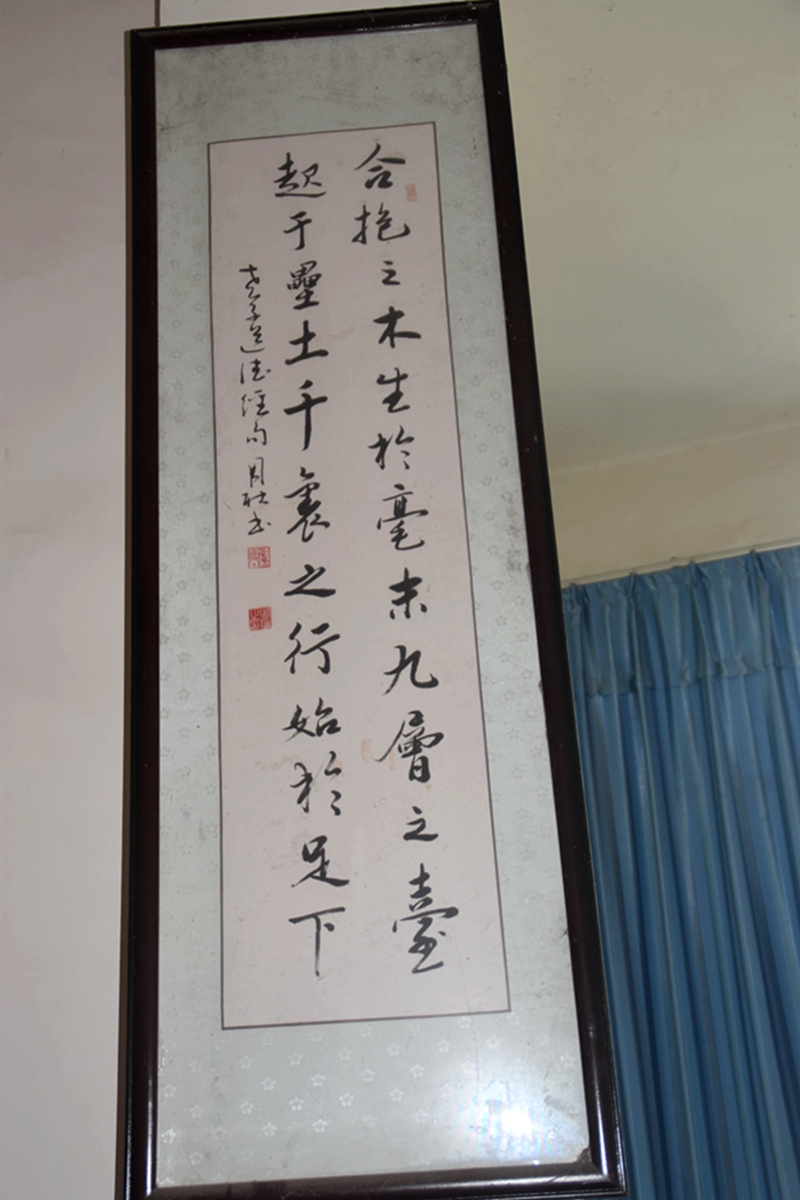 合抱之木生於毫末九層之臺
起于壘土千裏之行始於足下
老子道德經句 月书